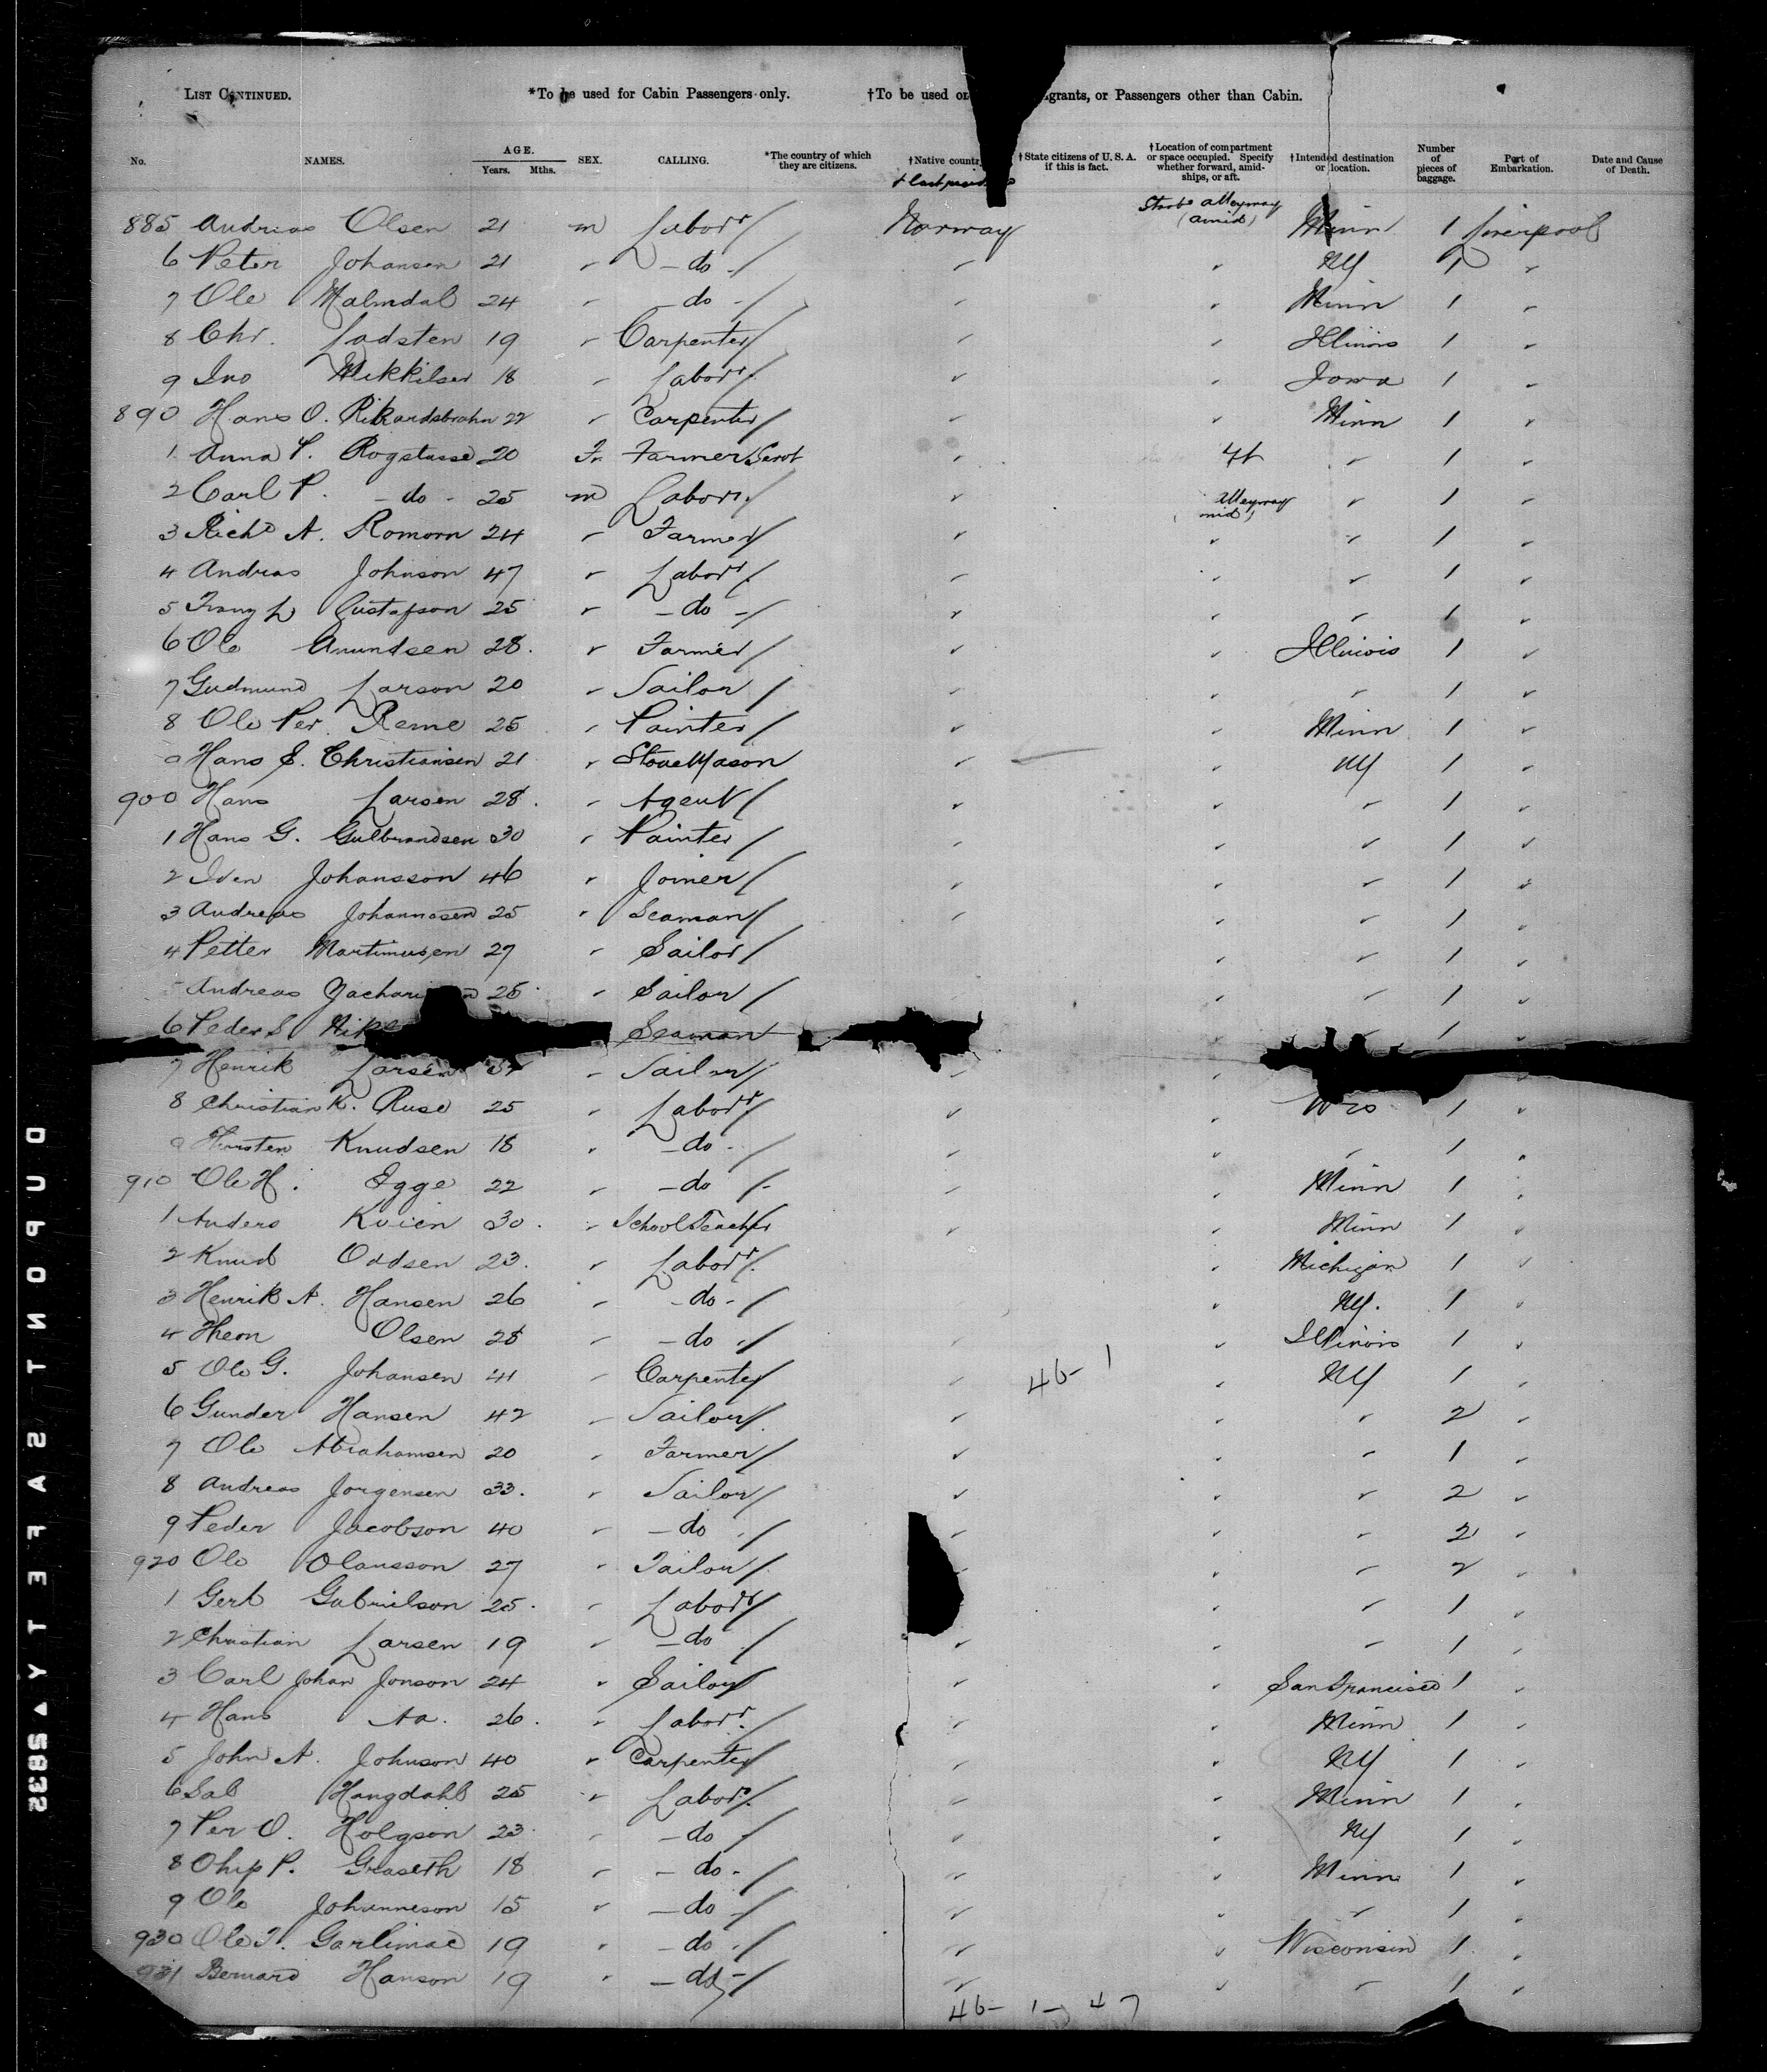 LIST CONTINUED. *To be used for Cabin Passengers only. †To be used on grants, or Passengers other than Cabin.
No. NAMES. AGE. Years. Mths. SEX. CALLING. *The country of which they are citizens. †Native countr †State citizens of U. S. A. if this is fact. †Location of compartment or space occupied. Specify whether forward, amidships, or aft. †Intended destination or location. Number of pieces of baggage. Port of Embarkation. Date and Cause of Death.
885 Andreas Olsen 21 m Labor Norway Starb alleyway (amid) Minn 1 Liverpool
6 Peter Johansen 21 " - do - " " NY 1 "
7 Ole Malmdal 24 " - do - " " Minn 1 "
8 Chr. Ladsten 19 " Carpenter " " Illinois 1 "
9 Mikkilsen 18 " Labor " " Iowa 1 "
890 Hans O. 22 " Carpenter " " Minn 1 "
1 Anna P. 20 F. Farmer Servt " " 1 "
2 Carl P. - do - 25 m Labor " Alleyway mid " 1 "
3 Richd A. Romorn 24 " Farmer " " " 1 "
4 Andreas Johnson 47 " Labor " " " 1 "
5 Gustafson 25 " - do - " " " 1 "
6 Ole Amundsen 28. " Farmer " " Illinois 1 "
7 Gudmund Larson 20 " Sailor " " " 1 "
8 Ole Per. Reme 25 " Painter " " Minn 1 "
9 Hans E. Christiansen 21 " Stone Mason " " NY 1 "
900 Hans Larsen 28. " Agent " " " 1 "
1 Hans G. Gulbrandsen 30 " Painter " " " 1 "
2 Iven Johansson 46 " Joiner " " " 1 "
3 Andreas Johannasen 25 " Seaman " " " 1 "
4 Petter Martinusen 27 " Sailor " " " 1 "
5 Andreas Zachari n 25 " Sailor " " 1 "
6 Peder S Seaman " 1 "
7 Henrik Larsen " Sailor " " "
8 Christian K. Ruse 25 " Labor " " Wis 1 "
9 Knudsen 18 " - do - " " " 1 "
910 Ole H. Egge 22 " - do - " " Minn 1 "
1 Anders Kvien 30. " School Teacher " " Minn 1 "
2 Knud Oddsen 23. " Labor " Michigan 1 "
3 Henrik A. Hansen 26 " - do - " NY. 1 "
4 Theon Olsen 28 " - do - " " Illinois 1 "
5 Ole G. Johansen 41 " Carpenter " 46-1 " NY 1 "
6 Gunder Hansen 42 " Sailor " " " 2 "
7 Ole Abrahamsen 20 " Farmer " " " 1 "
8 Andreas Jorgensen 33. " Sailor " " " 2 "
9 Peder Jacobson 40 " - do - " " " 2 "
920 Ole Olausson 27 " Tailor " " 2 "
1 Gert Gabrielson 25. " Labor " " 1 "
2 Christian Larsen 19 " - do " " " 1 "
3 Carl Johan Jonson 24 " Sailor " " San Francisco 1 "
4 Hans Aa. 26. " Labor " " Minn 1 "
5 John A. Johnson 40 " Carpenter " " NY 1 "
6 Sal Haugdahl 25 " Labor " " Minn 1 "
7 Per O. Holgson 23 " - do - " " NY 1 "
8 P. Graseth 18 " - do - " " Minn 1 "
9 Ole Johanneson 15 " - do - " " " 1 "
930 Ole T. 19 " - do - " " Wisconsin 1 "
931 Bernard Hanson 19 " - do - " " " 1 "
46-1-47
DUPONT SAFETY 2385